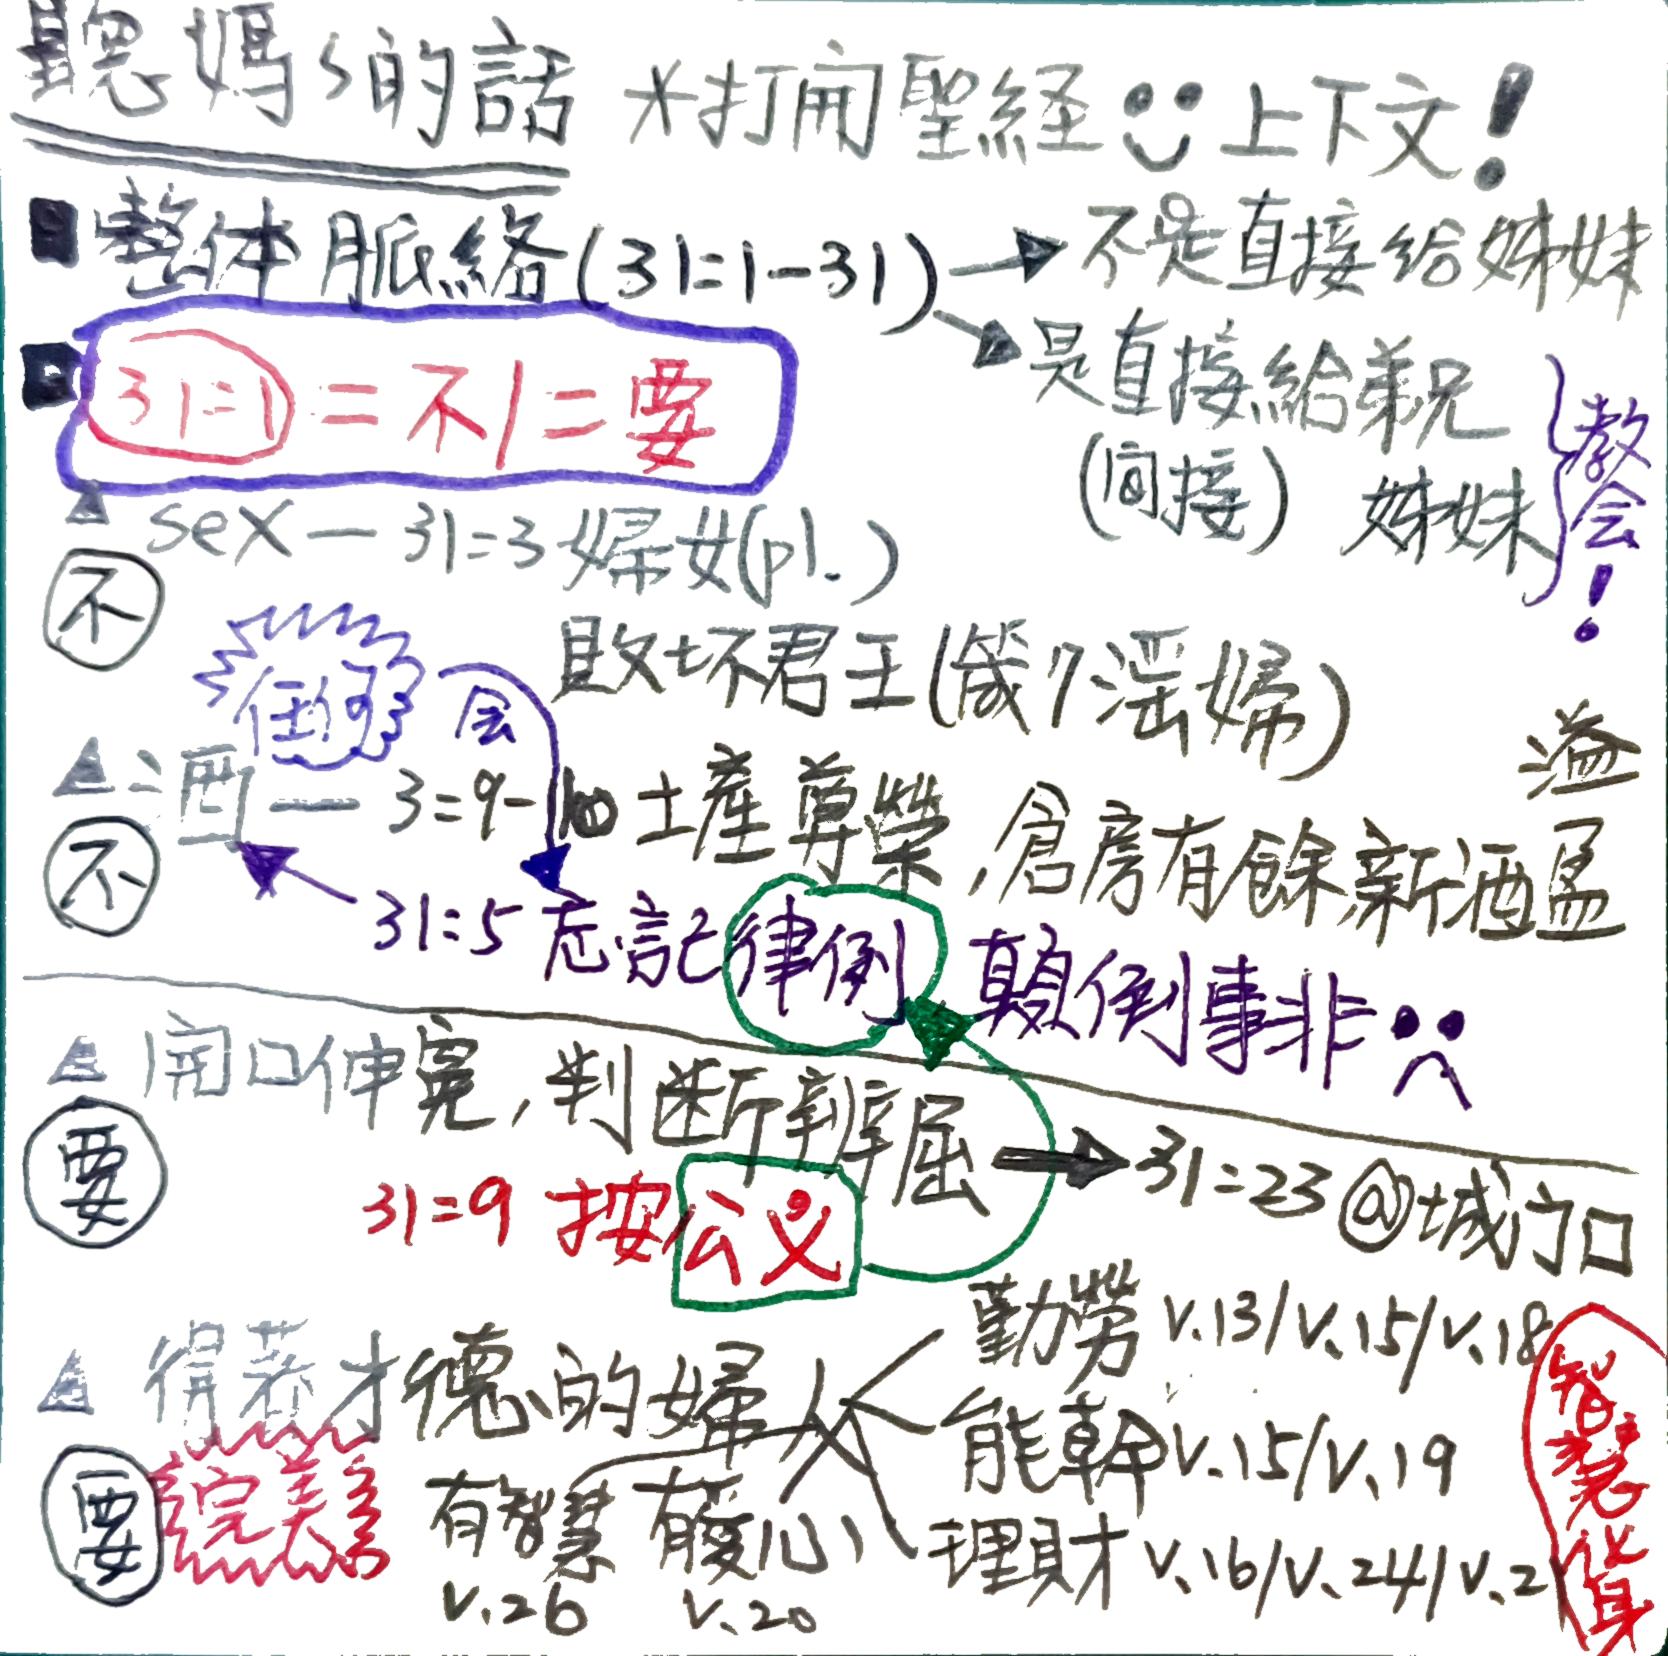 聽媽々的話 *打開聖経 上下文!
整体脈絡(31:1-31) → 不是直接給姊妹
→ 是直接給弟兄
(间接) 姊妹
教会!
31:1 = 不/=要
sex — 31:3 婦女(pl.)
不
敗坏君王(箴7淫婦)
任何
会
酒 — 3:9-10 土產尊榮,倉房有餘,新酒盈
溢
不
31:5 忘記律例 顛倒事非
開口伸寃,判断辨屈 → 31:23 @城门口
要
31:9 按公义
得著才德的婦人
勤勞 v.13/v.15/v.18
能幹 v.15/v.19
理財 v.16/v.24/v.2
要
完美
有智慧 有愛心
v.26 v.20
智慧化身